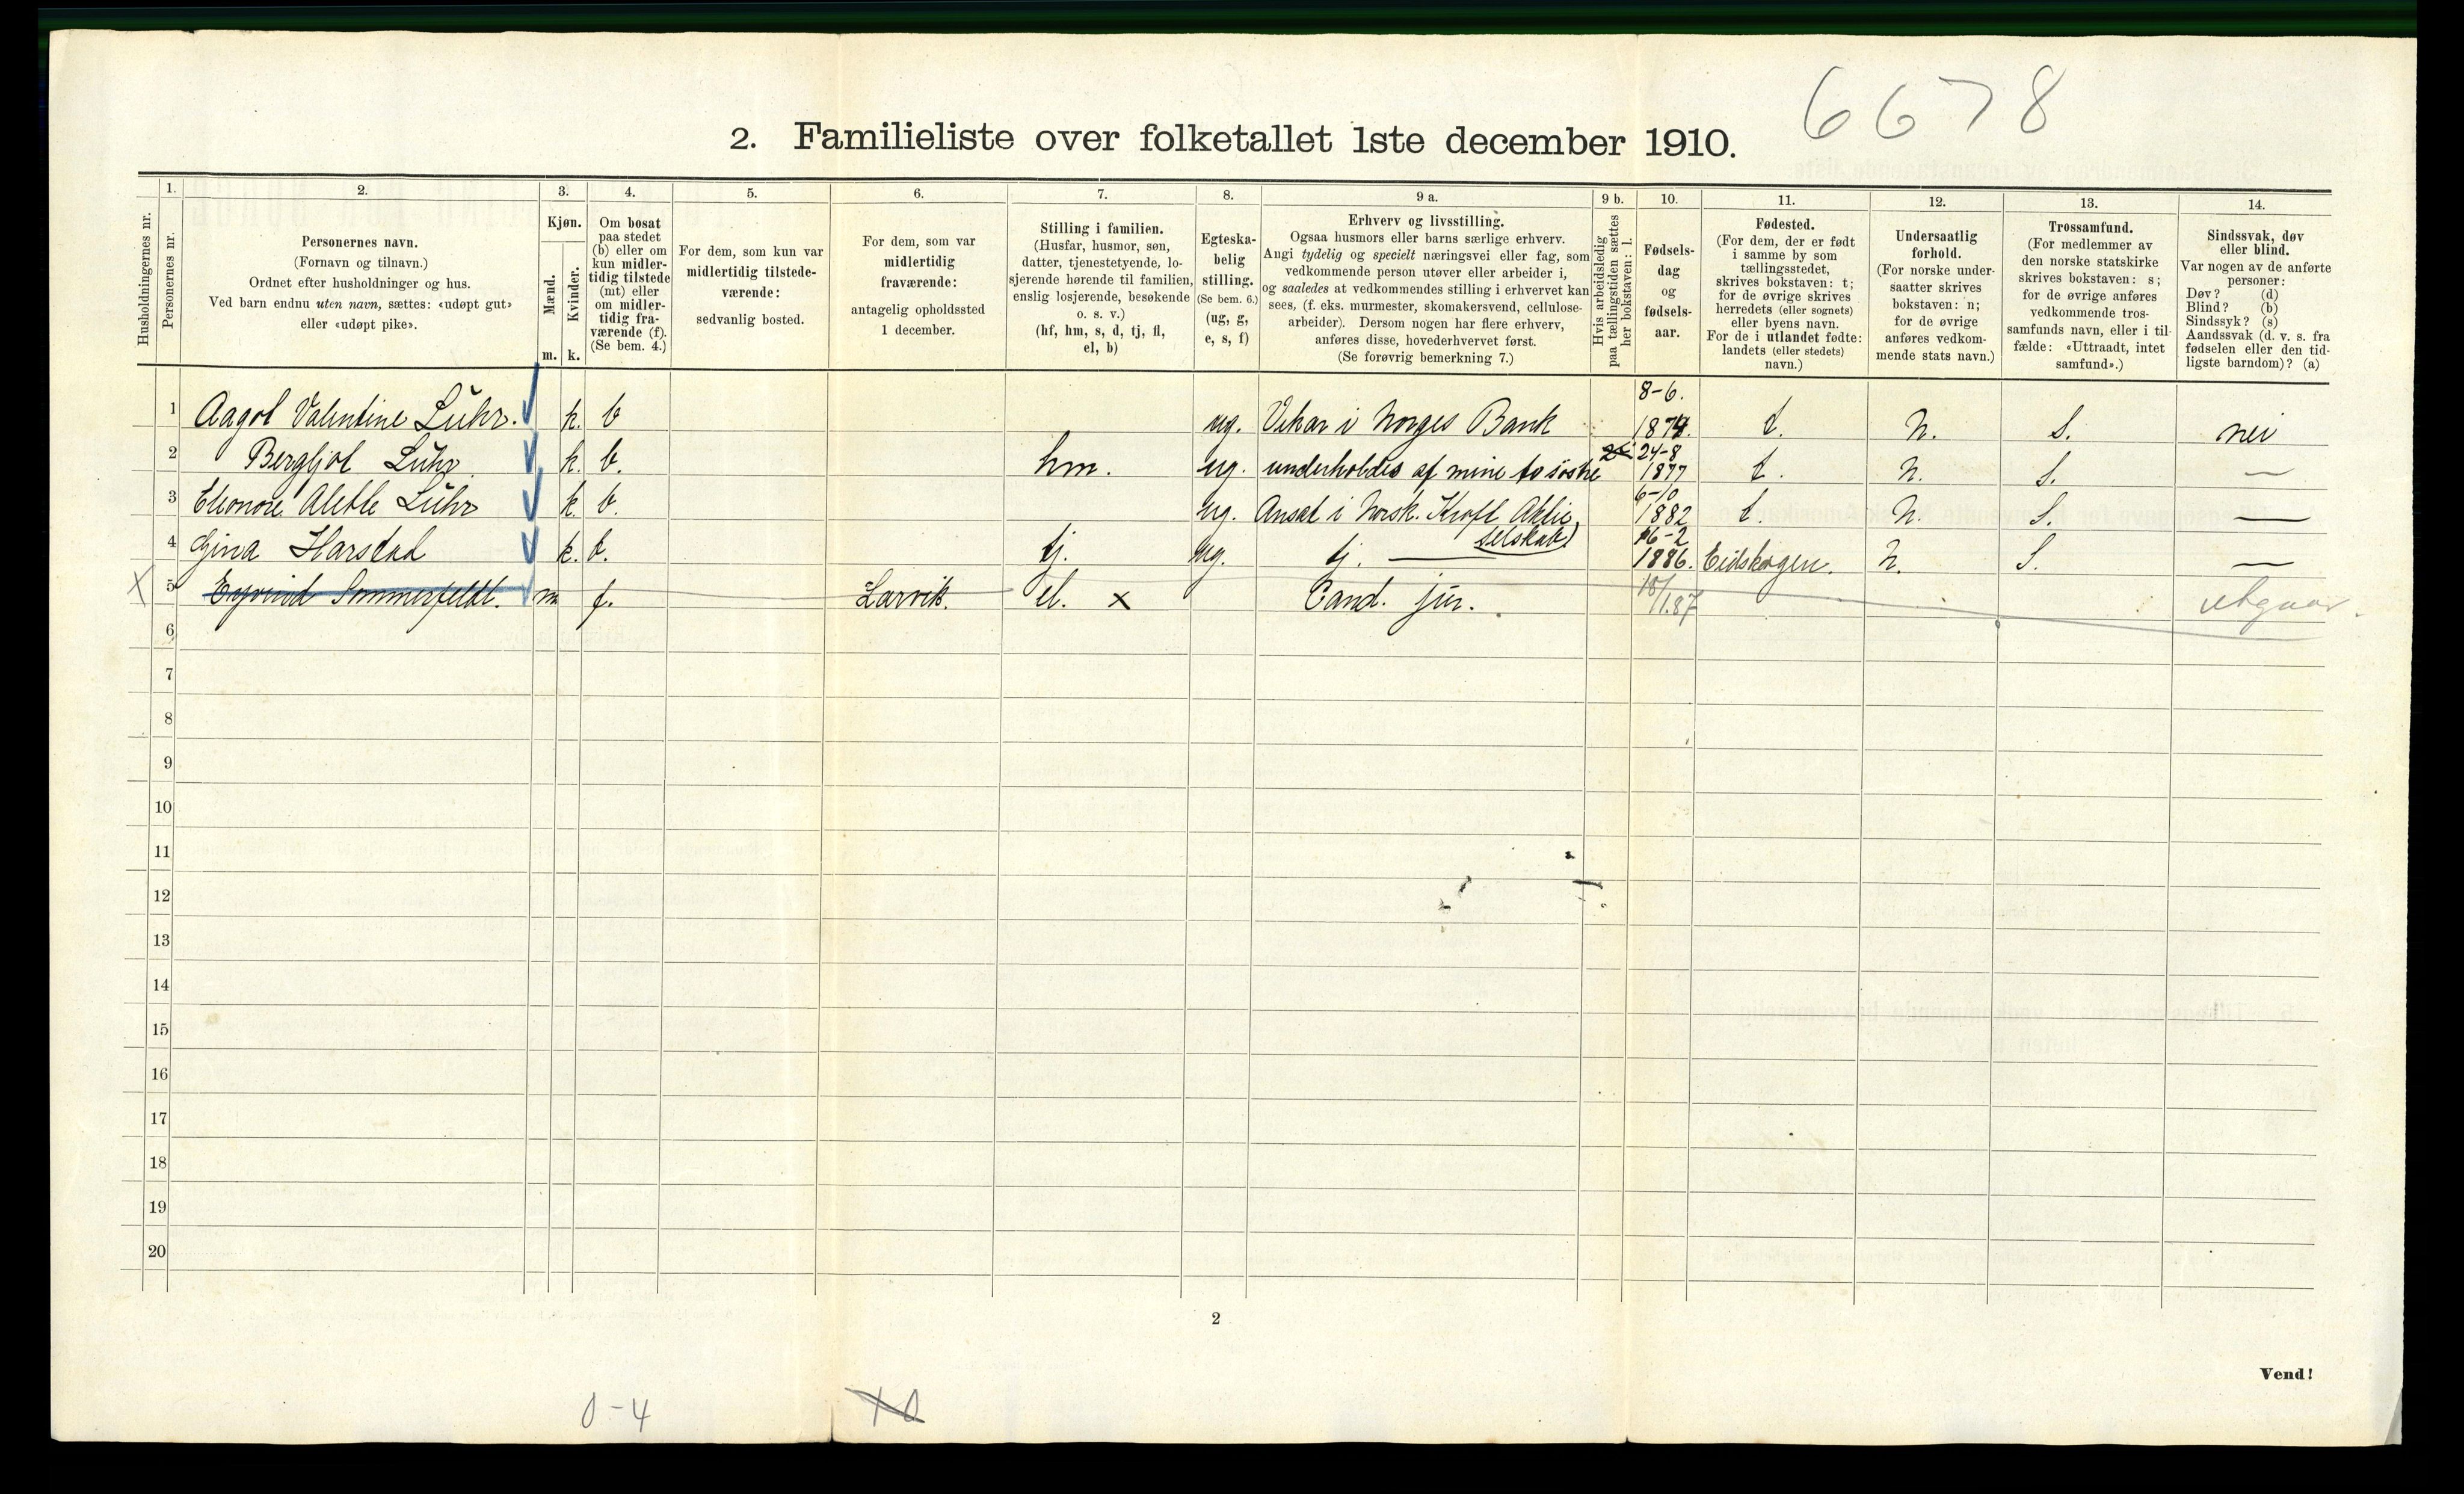 6678
2. Familieliste over folketallet 1ste december 1910.
Husholdningernes nr.
1.
Personernes nr.
2.
Personernes navn.
(Fornavn og tilnavn.)
Ordnet efter husholdninger og hus.
Ved barn endnu uten navn, sættes: «udøpt gut»
eller «udøpt pike».
3.
Kjøn.
Mænd.
Kvinder.
m.
k.
4.
Om bosat
paa stedet
(b) eller om
kun midler-
tidig tilstede
(mt) eller
om midler-
tidig fra-
værende (f).
(Se bem. 4.)
5.
For dem, som kun var
midlertidig tilstede-
værende:
sedvanlig bosted.
6.
For dem, som var
midlertidig
fraværende:
antagelig opholdssted
1 december.
7.
Stilling i familien.
(Husfar, husmor, søn,
datter, tjenestetyende, lo-
sjerende hørende til familien,
enslig losjerende, besøkende
o. s. v.)
(hf, hm, s, d, tj, fl,
el, b)
8.
Egteska-
belig
stilling.
(Se bem. 6.)
(ug, g,
e, s, f)
9 a.
Erhverv og livsstilling.
Ogsaa husmors eller barns særlige erhverv.
Angi tydelig og specielt næringsvei eller fag, som
vedkommende person utøver eller arbeider i,
og saaledes at vedkommendes stilling i erhvervet kan
sees, (f. eks. murmester, skomakersvend, cellulose-
arbeider). Dersom nogen har flere erhverv,
anføres disse, hovederhvervet først.
(Se forøvrig bemerkning 7.)
9 b.
Hvis arbeidsledig
paa tællingstiden sættes
her bokstaven: l.
10.
Fødsels-
dag
og
fødsels-
aar.
11.
Fødested.
(For dem, der er født
i samme by som
tællingsstedet,
skrives bokstaven: t;
for de øvrige skrives
herredets (eller sognets)
eller byens navn.
For de i utlandet fødte:
landets (eller stedets)
navn.)
12.
Undersaatlig
forhold.
(For norske under-
saatter skrives
bokstaven: n;
for de øvrige
anføres vedkom-
mende stats navn.)
13.
Trossamfund.
(For medlemmer av
den norske statskirke
skrives bokstaven: s;
for de øvrige anføres
vedkommende tros-
samfunds navn, eller i til-
fælde: «Uttraadt, intet
samfund».)
14.
Sindssvak, døv
eller blind.
Var nogen av de anførte
personer:
Døv? (d)
Blind? (b)
Sindssyk? (s)
Aandssvak (d. v. s. fra
fødselen eller den tid-
ligste barndom)? (a)
1 Aagot Valentine Lühr. k. b ug. Vikar i Norges Bank 8-6. 1874. t. n. S. nei
2 Bergljot Lühr. k. b. hm. ug. underholdes af mine to søstre 24-8 1877 t. n. S. —
3 Eleonore Alette Lühr k. b. ug. Ansat i Norsk. Kraft Aktie selskab) 6-10 1882 t. n. S. —
4 Gina Harstad k. b. tj. ug. tj. — 16-2 1886. Eidskogen. n. S. —
X 5 Eyvind Sommerfeldt. m f. Larvik. el. x Cand. jur. 18/1.87 utgaar.
6
7
8
9
10
11
12
13
14
15
16
17
18
19
20
2
Vend!
0-4
10